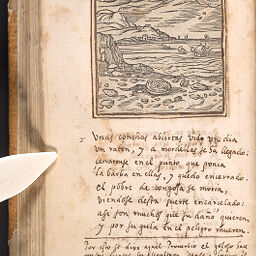 Unas conchas abiertas vido un dia
un raton, y a mordellas se ha llegado:
ceraronse en el punto que ponia
la barba en ellas, y quedo encerrado.
el pobre de congoxa se moria,
viendose desta suerte encarcelado:
assi son muchos que su daño quieren,
y por su gula en el peligro mueren.
Por esto se dixo aquel Proverbio el goloso